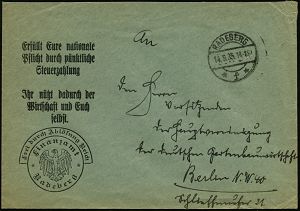 Erfüllt Eure nationale
Pflicht durch pünktliche
Steuerzahlung
Ihr nützt dadurch der
Wirtschaft und Euch
selbst.
Frei durch Ablösung Reich
Finanzamt
Radeberg
RADEBERG
An
den Herrn
Vorsitzenden
der Hauptvereinigung
der deutschen Gartenbauwirtschaft
Berlin N.W. 40
Schlieffenufer 21